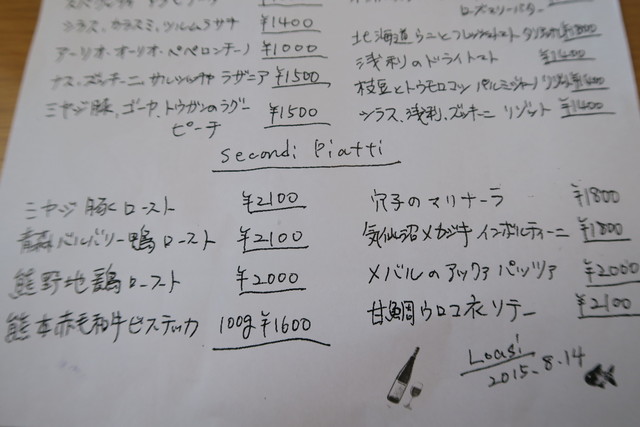 シラス、カラスミ、ツルムラサキ ¥1400
アーリオ・オーリオ・ペペロンチーノ ¥1000
ナス、ズッキーニ、サルシッチャ ラザニア ¥1500
ミヤジ豚、ゴーヤ、トウガンのラグー
ピーチ ¥1500
ローズマリーバター
北海道ウニとフレッシュトマト ¥1800
浅利のドライトマト ¥1400
枝豆とトウモロコシ パルミジャーノ リゾット ¥1400
シラス、浅利、ズッキーニ リゾット ¥1400
Secondi Piatti
ミヤジ豚 ロースト ¥2100
青森バルバリー鴨 ロースト ¥2100
熊野地鶏 ロースト ¥2000
熊本赤毛和牛ビステッカ 100g ¥1600
穴子のマリナーラ ¥1800
気仙沼メカジキ インボルティーニ ¥1800
メバルのアックァパッツァ ¥2000
甘鯛ウロコ衣ソテー ¥2100
Loasi
2015-8.14